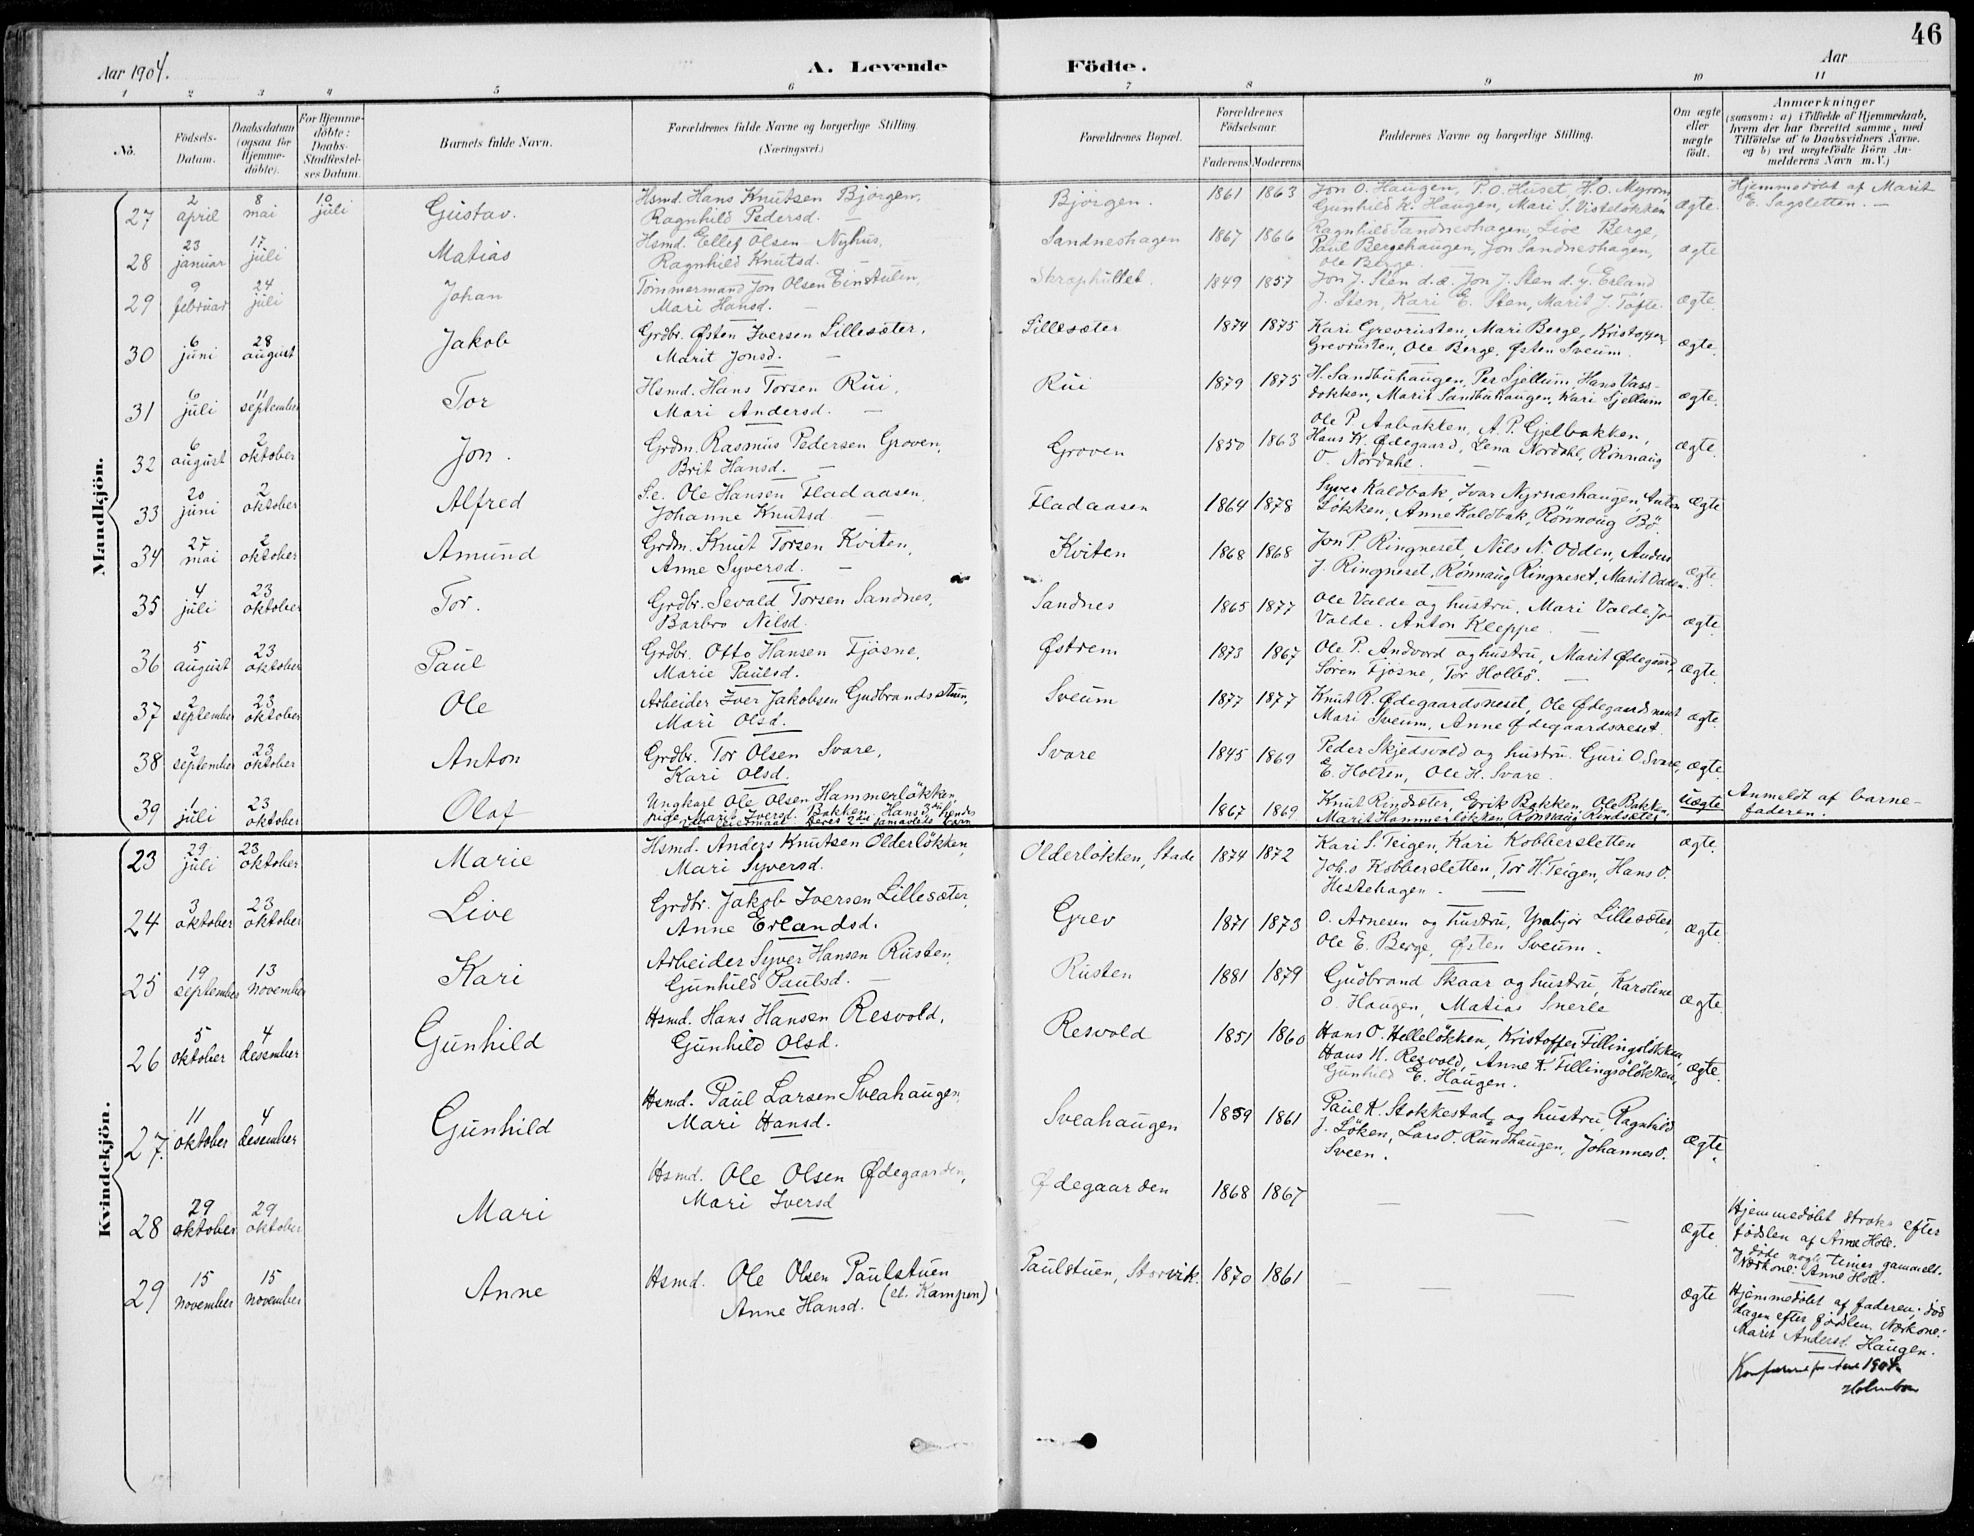 46
Aar 1904.
A. Levende Födte.
Aar
1 2 3 4 5 6 7 8 9 10 11
No.
Födsels-Datum.
Daabsdatum (ogsaa for Hjemme-döbte).
For Hjemme-döbte: Daabs-Stadfæstel-ses Datum.
Barnets fulde Navn.
Forældrenes fulde Navne og borgerlige Stilling. (Næringsvei.)
Forældrenes Bopæl.
Forældrenes Födselsaar.
Faderens Moderens
Faddernes Navne og borgerlige Stilling.
Om ægte eller uægte födt.
Anmærkninger (saasom: a) i Tilfælde af Hjemmedaab, hvem der har forrettet samme, med Tilföielse af to Daabsvidners Navne, og b) ved uægtefödte Börn Anmelderens Navn m.V.)
Mandkjön.
27 2 april 8 mai 10 juli Gustav. Hsmd. Hans Knutsen Bjørgen, Ragnhild Pedersd. — Bjørgen. 1861 1863 Jon O. Haugen, P. O. Huset, H. O. Myrom, Gunhild K. Haugen, Mari S. Visteløkken ægte. Hjemmedøbt af Marit E. Sagsletten. —
28 23 januar 17 juli Matias Hsmd. Ellef Olsen Nyhus, Ragnhild Knutsd. — Sandneshagen 1867 1866 Ragnhild Sandneshagen, Live Berge, Paul Bergehaugen, Jon Sandneshagen, Ole Berge. ægte
29 9 februar 24 juli Johan Tømmermand Jon Olsen Einstulen, Mari Hansd. — Skraphullet. 1849 1857 Jon J. Sten d.æ. Jon J. Sten d.y. Erland J. Sten, Kari E. Sten, Marit J. Tofte. ægte.
30 6 juni 28 august Jakob Grdbr. Østen Iversen Lillesæter, Marit Jonsd. — Lillesæter 1874 1875 Kari Grevrusten, Mari Berge, Kristoffer Grevrusten, Ole Berge, Østen Sveum. ægte.
31 6 juli 11 september Tor Hsmd. Hans Torsen Rui, Mari Andersd. — Rui 1879 1875 H. Sandbuhaugen, Per Sjellum, Hans Vassdokken, Marit Sandbuhaugen, Kari Sjellum ægte.
32 6 august 2 oktober Jon. Grdm. Rasmus Pedersen Groven, Brit Hansd. — Groven 1850 1863 Ole P. Aabakken, A. P. Gjelbakken, Hans K. Ødegaard, Lena Nordahl, Rønnaug O. Nordahl. — ægte.
33 20 juni 2 oktober Alfred S.e. Ole Hansen Fladaasen, Johanne Knutsd — Fladaasen 1864 1878 Syver Kaldbak, Ivar Nyrnæshaugen, Anton Løkken, Anne Kaldbak, Rønnoug Bø. ægte
34 27 mai 2 oktober Amund Grdm. Knut Torsen Kviten, Anne Syversd. — Kviten 1868 1868 Jon P. Ringneset, Nils N. Odden, Anders J. Ringneset, Rønnaug Ringneset, Marit Odden. ægte.
35 4 juli 23 oktober Tor. Grdbr. Sevald Torsen Sandnes, Barbro Nilsd. Sandnes 1865 1877 Ole Valde og hustru, Mari Valde, Jo Valde. Anton Kleppe. — ægte
36 5 august 23 oktober Paul Grdbr. Otto Hansen Fjosne, Marie Paulsd. Østrem 1873 1867 Ole P. Andvord og hustru, Marit Ødegaard, Søren Fjosne, Tor Holbø. — ægte.
37 2 september 23 oktober Ole Arbeider Iver Jakobsen Gudbrandsstuen, Mari Olsd. Sveum 1877 1877 Knut R. Ødegaardsneset, Ole Ødegaardsneset Mari Sveum, Anne Ødegaardsneset. ægte.
38 2 september 23 oktober Anton Grdbr. Tor Olsen Svare, Kari Olsd. Svare 1845 1869 Peder Skjedsvold og hustru. Guri O. Svare, E. Holten, Ole H. Svare. ægte
39 1 juli 23 oktober Olaf Ungkarl Ole Olsen Hammerløkken, pige Marit Iversd. Bakken. Hans 3die, hendes 2det leiermaal. Deres 2det samavlede barn 1867 1869 Knut Rindsæter, Erik Bakken, Ole Bakken, Marit Hammerløkken, Rønnaug Rindsæter. uægte Anmeldt af barnefaderen.
Kvindekjön.
23 29 juli 23 oktober Marie Hsmd. Anders Knutsen Olderløkken, Mari Syversd. Olderløkken, Stade 1874 1872 Kari S. Teigen, Kari Kobbersletten Joh.s Kobbersletten, Tor H. Teigen, Hans O. Hestehagen. — ægte.
24 3 oktober 23 oktober Live Grdbr. Jakob Iversen Lillesæter, Anne Erlandsd. Grev 1871 1873 O. Arnesen og hustru, Ynbjør Lillesæter, Ole E. Berge, Østen Sveum. ægte.
25 19 september 13 november Kari Arbeider Syver Hansen Rusten, Gunhild Paulsd. — Rusten 1881 1879 Gudbrand Skaar og hustru, Karoline O. Haugen, Matias Snerle ægte.
26 5 oktober 4 desember Gunhild Hsmd. Hans Hansen Resvold, Gunhild Olsd. Resvold 1851 1860 Hans O. Helleløkken, Kristoffer Fillingsløkken, Hans H. Resvold, Anne K. Fillingsløkken, Gunhild E. Haugen. ægte.
27. 11 oktober 4 desember Gunhild Hsmd. Paul Larsen Sveahaugen, Mari Hansd. Sveahaugen 1859 1861 Paul K. Stokkestad og hustru, Ragnhild J. Løken, Lars O. Rundhaugen, Johannes O. Sveen. ægte.
28 29 oktober 29 oktober Mari Hsmd. Ole Olsen Ødegaarden, Mari Iversd Ødegaarden 1868 1867 — — — ægte. Hjemmedøbt straks efter fødslen af Anne Holl. og døde nogle timer gammelt. Nærkone: Anne Holl.
29 15 november 15 november Anne Hsmd. Ole Olsen Paulstuen (el. Kampen) Anne Hansd. Paulstuen, Storvik. 1870 1861 — — — ægte Hjemmedøbt af faderen; død dagen efter fødslen. Nærkone: Marit Andersd. Haugen.
Konfereret for Aaret 1904.
Holmboe